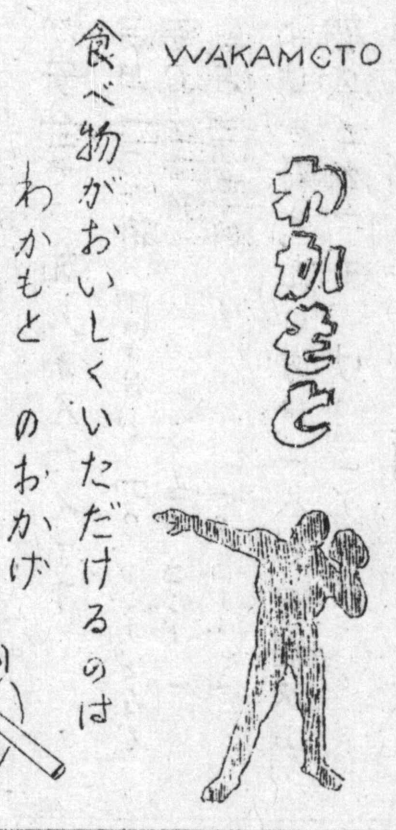 WAKAMOTO
わかもと
食べ物がおいしくいただけるのは
わかもと のおかげ